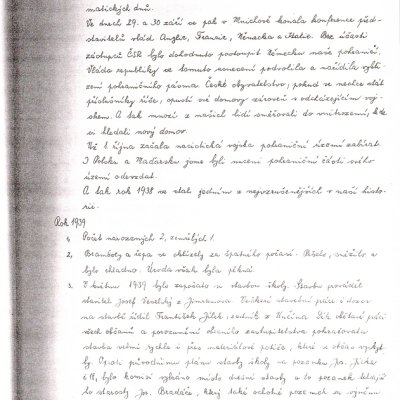 matických dnů.
Ve dnech 29. a 30. září se pak v Mnichově konala konference před-
stavitelů vlád Anglie, Francie, Německa a Italie. Bez účasti
zástupců ČSR bylo dohodnuto postoupit Německu naše pohraničí.
Vláda republiky se tomuto usnesení podvolila a nařídila vykli-
zení pohraničního pásma České obyvatelstvo; pokud se nechce stát
příslušníky říše, opustí své domovy zároveň s odcházejícím voj-
skem. A tak mnozí z našich lidí směřovali do vnitrozemí, kde
si hledali nový domov.
Už 1. října začala nacistická vojska pohraniční území zabírat.
I Polsku a Maďarsku jsme byli nuceni pohraniční části svého
území odevzdat.
A tak rok 1938 se stal jedním z nejvzrušenějších v naší histo-
rii.
Rok 1939
1, Počet narozených 2, zemřelých 1.
2, Brambory a řepa se sklízely za špatného počasí. Pršelo, sněžilo a
bylo chladno. Úroda však byla pěkná.
3. V květnu 1939 bylo započato se stavbou školy. Stavbu prováděl
stavitel Josef Veselský z Jimramova. Veškeré stavební práce i dozor
na stavbě řídil František Jílek, zedník z Kněžna. Dík obětavé práci
všech občanů a porozumění obecního zastupitelstva pokračovala
stavba velmi rychle i přes materiálové potíže, které se občas vyskyt-
ly. Oproti původnímu plánu stavby školy na pozemku Jos. Jílka
č. 18, bylo komisí vybráno místo dnešní stavby a to pozemek tehdejší-
ho starosty Jos. Bradáče, který také ochotně pozemek za výměnu